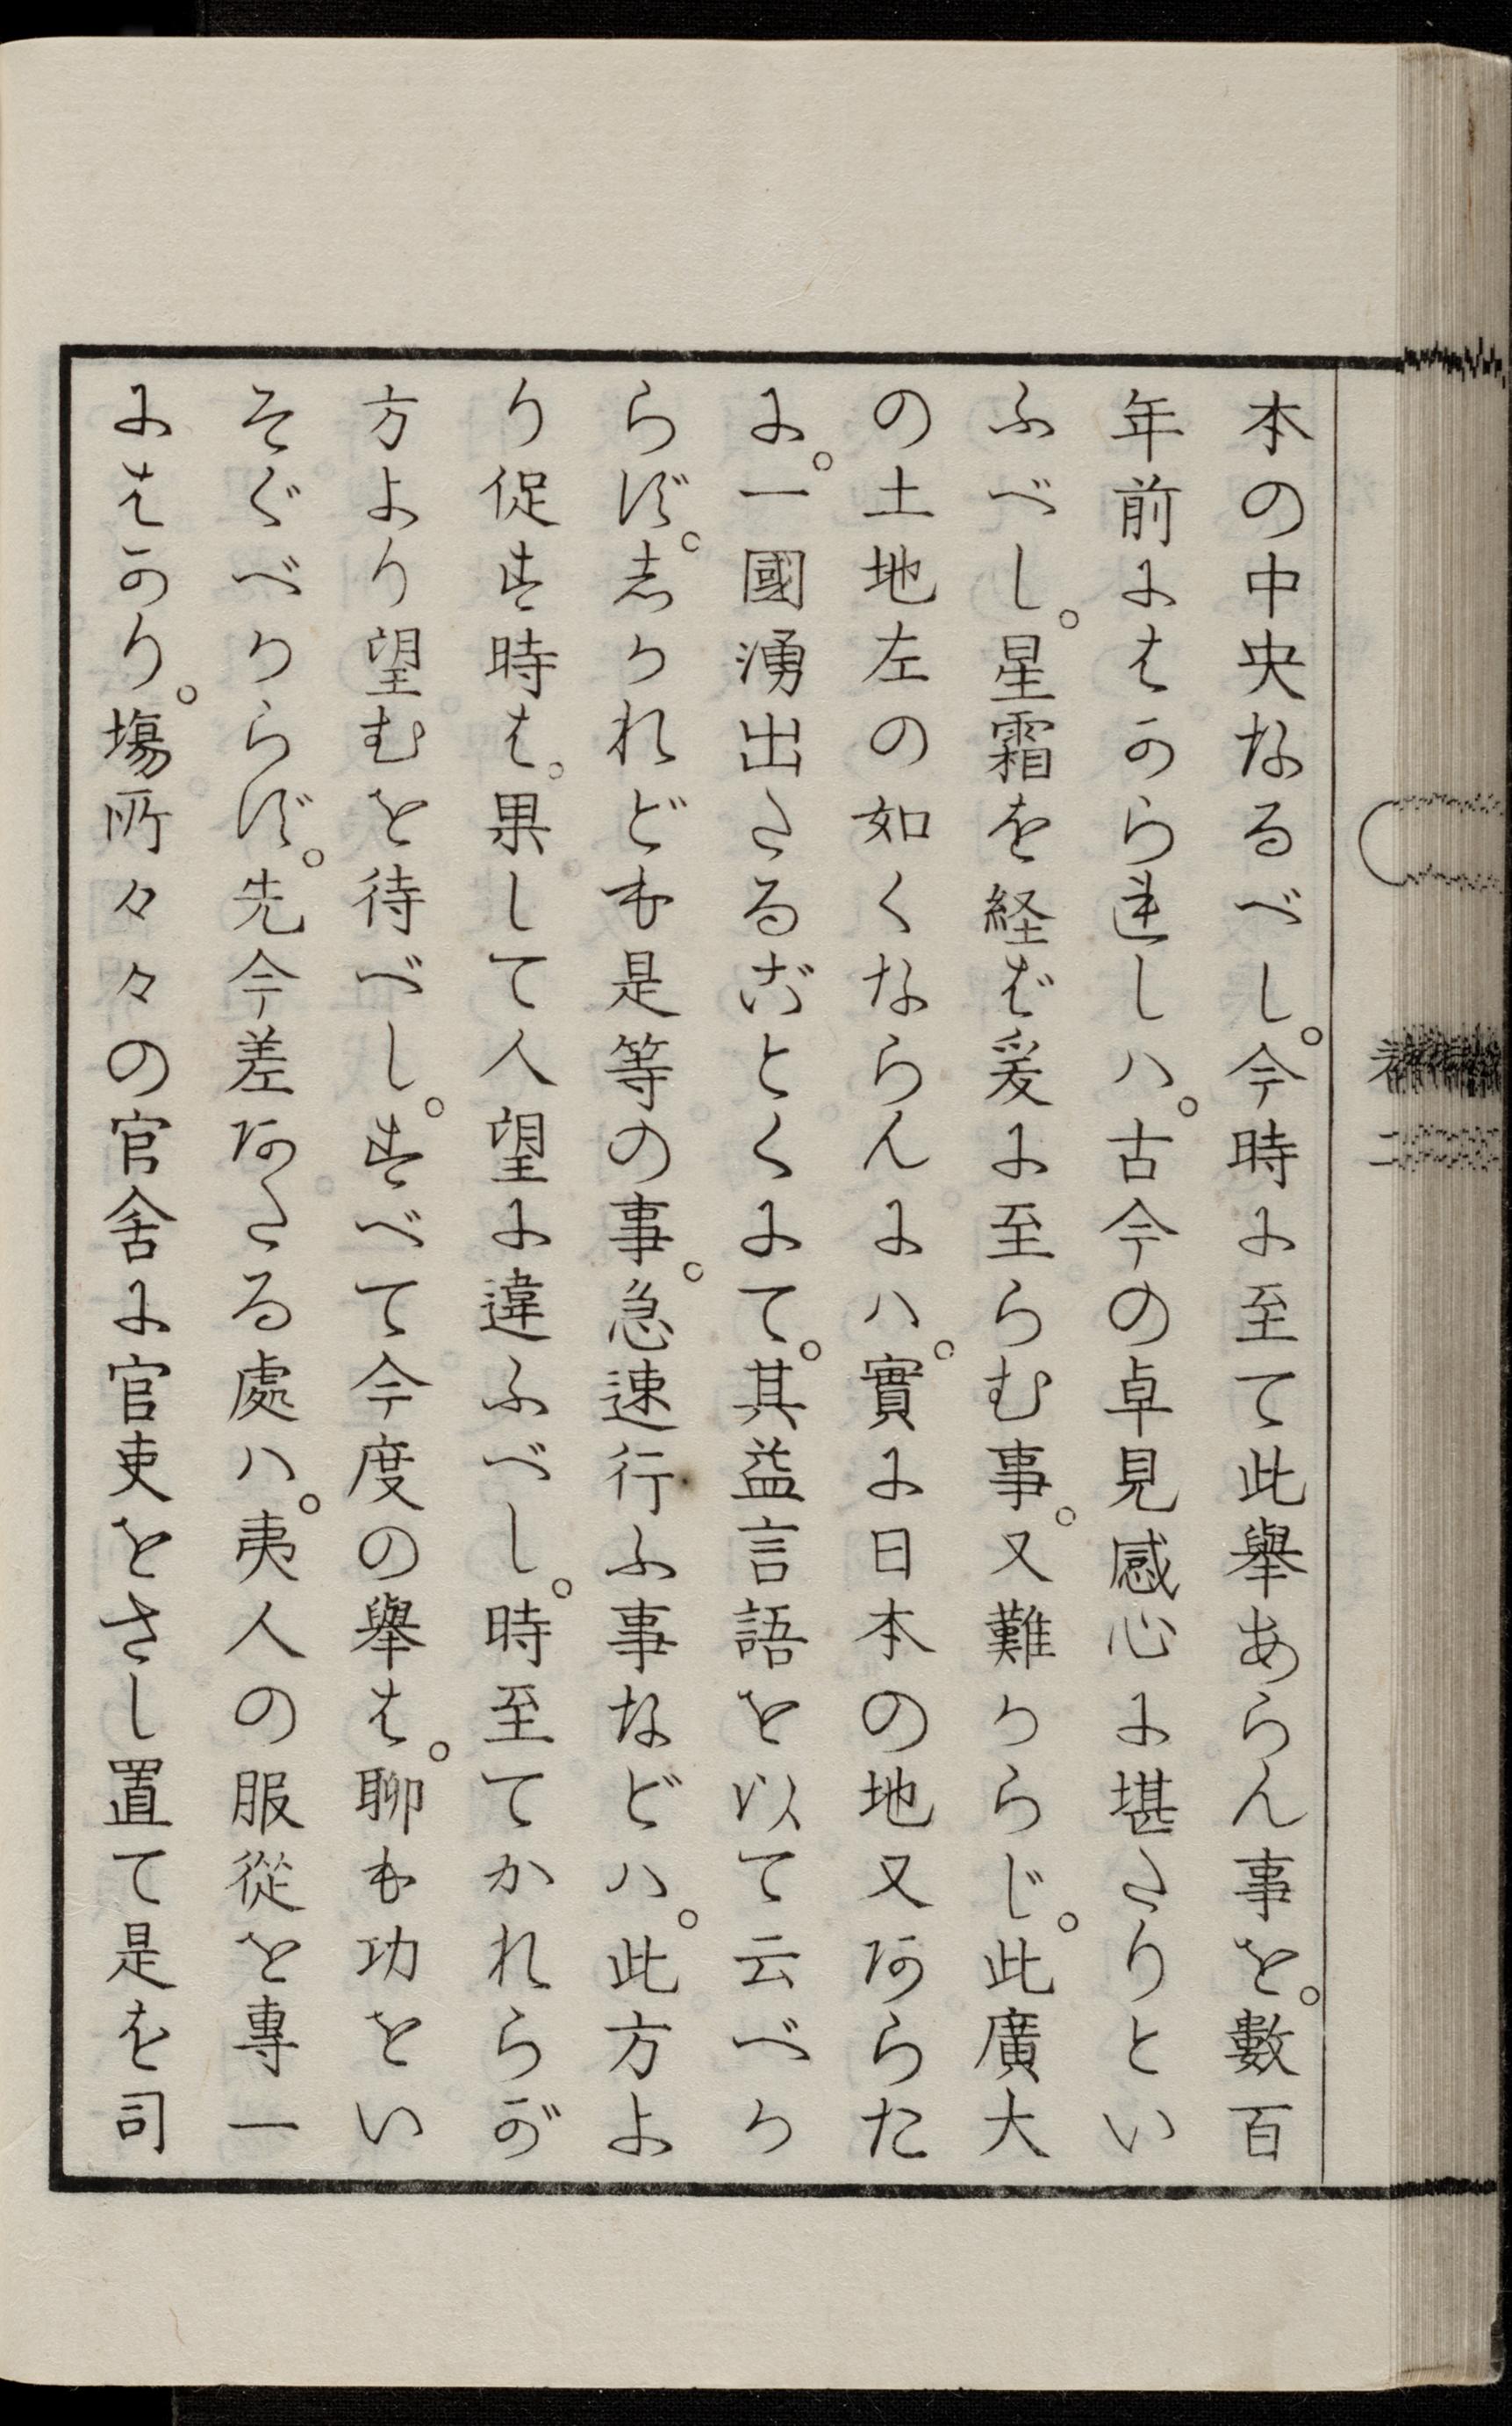 本の中央なるべし。今時に至て此擧あらん事を。數百
年前にはからましハ。古今の卓見感心に堪たりとい
ふべし。星霜を経ば爰に至らむ事。又難からじ。此廣大
の土地左の如くならんにハ。實に日本の地又あらた
に。一國湧出たるごとくにて。其益言語を以て云べか
らず。しかれども是等の事。急速行ふ事などハ。此方よ
り促す時は。果して人望に違ふべし。時至てかれらが
方より望むを待べし。すべて今度の擧は。聊も功をい
そぐべからず。先今差あたる處ハ。夷人の服從を專一
にはかり。塲所々々の官舍に官吏をさし置て是を司